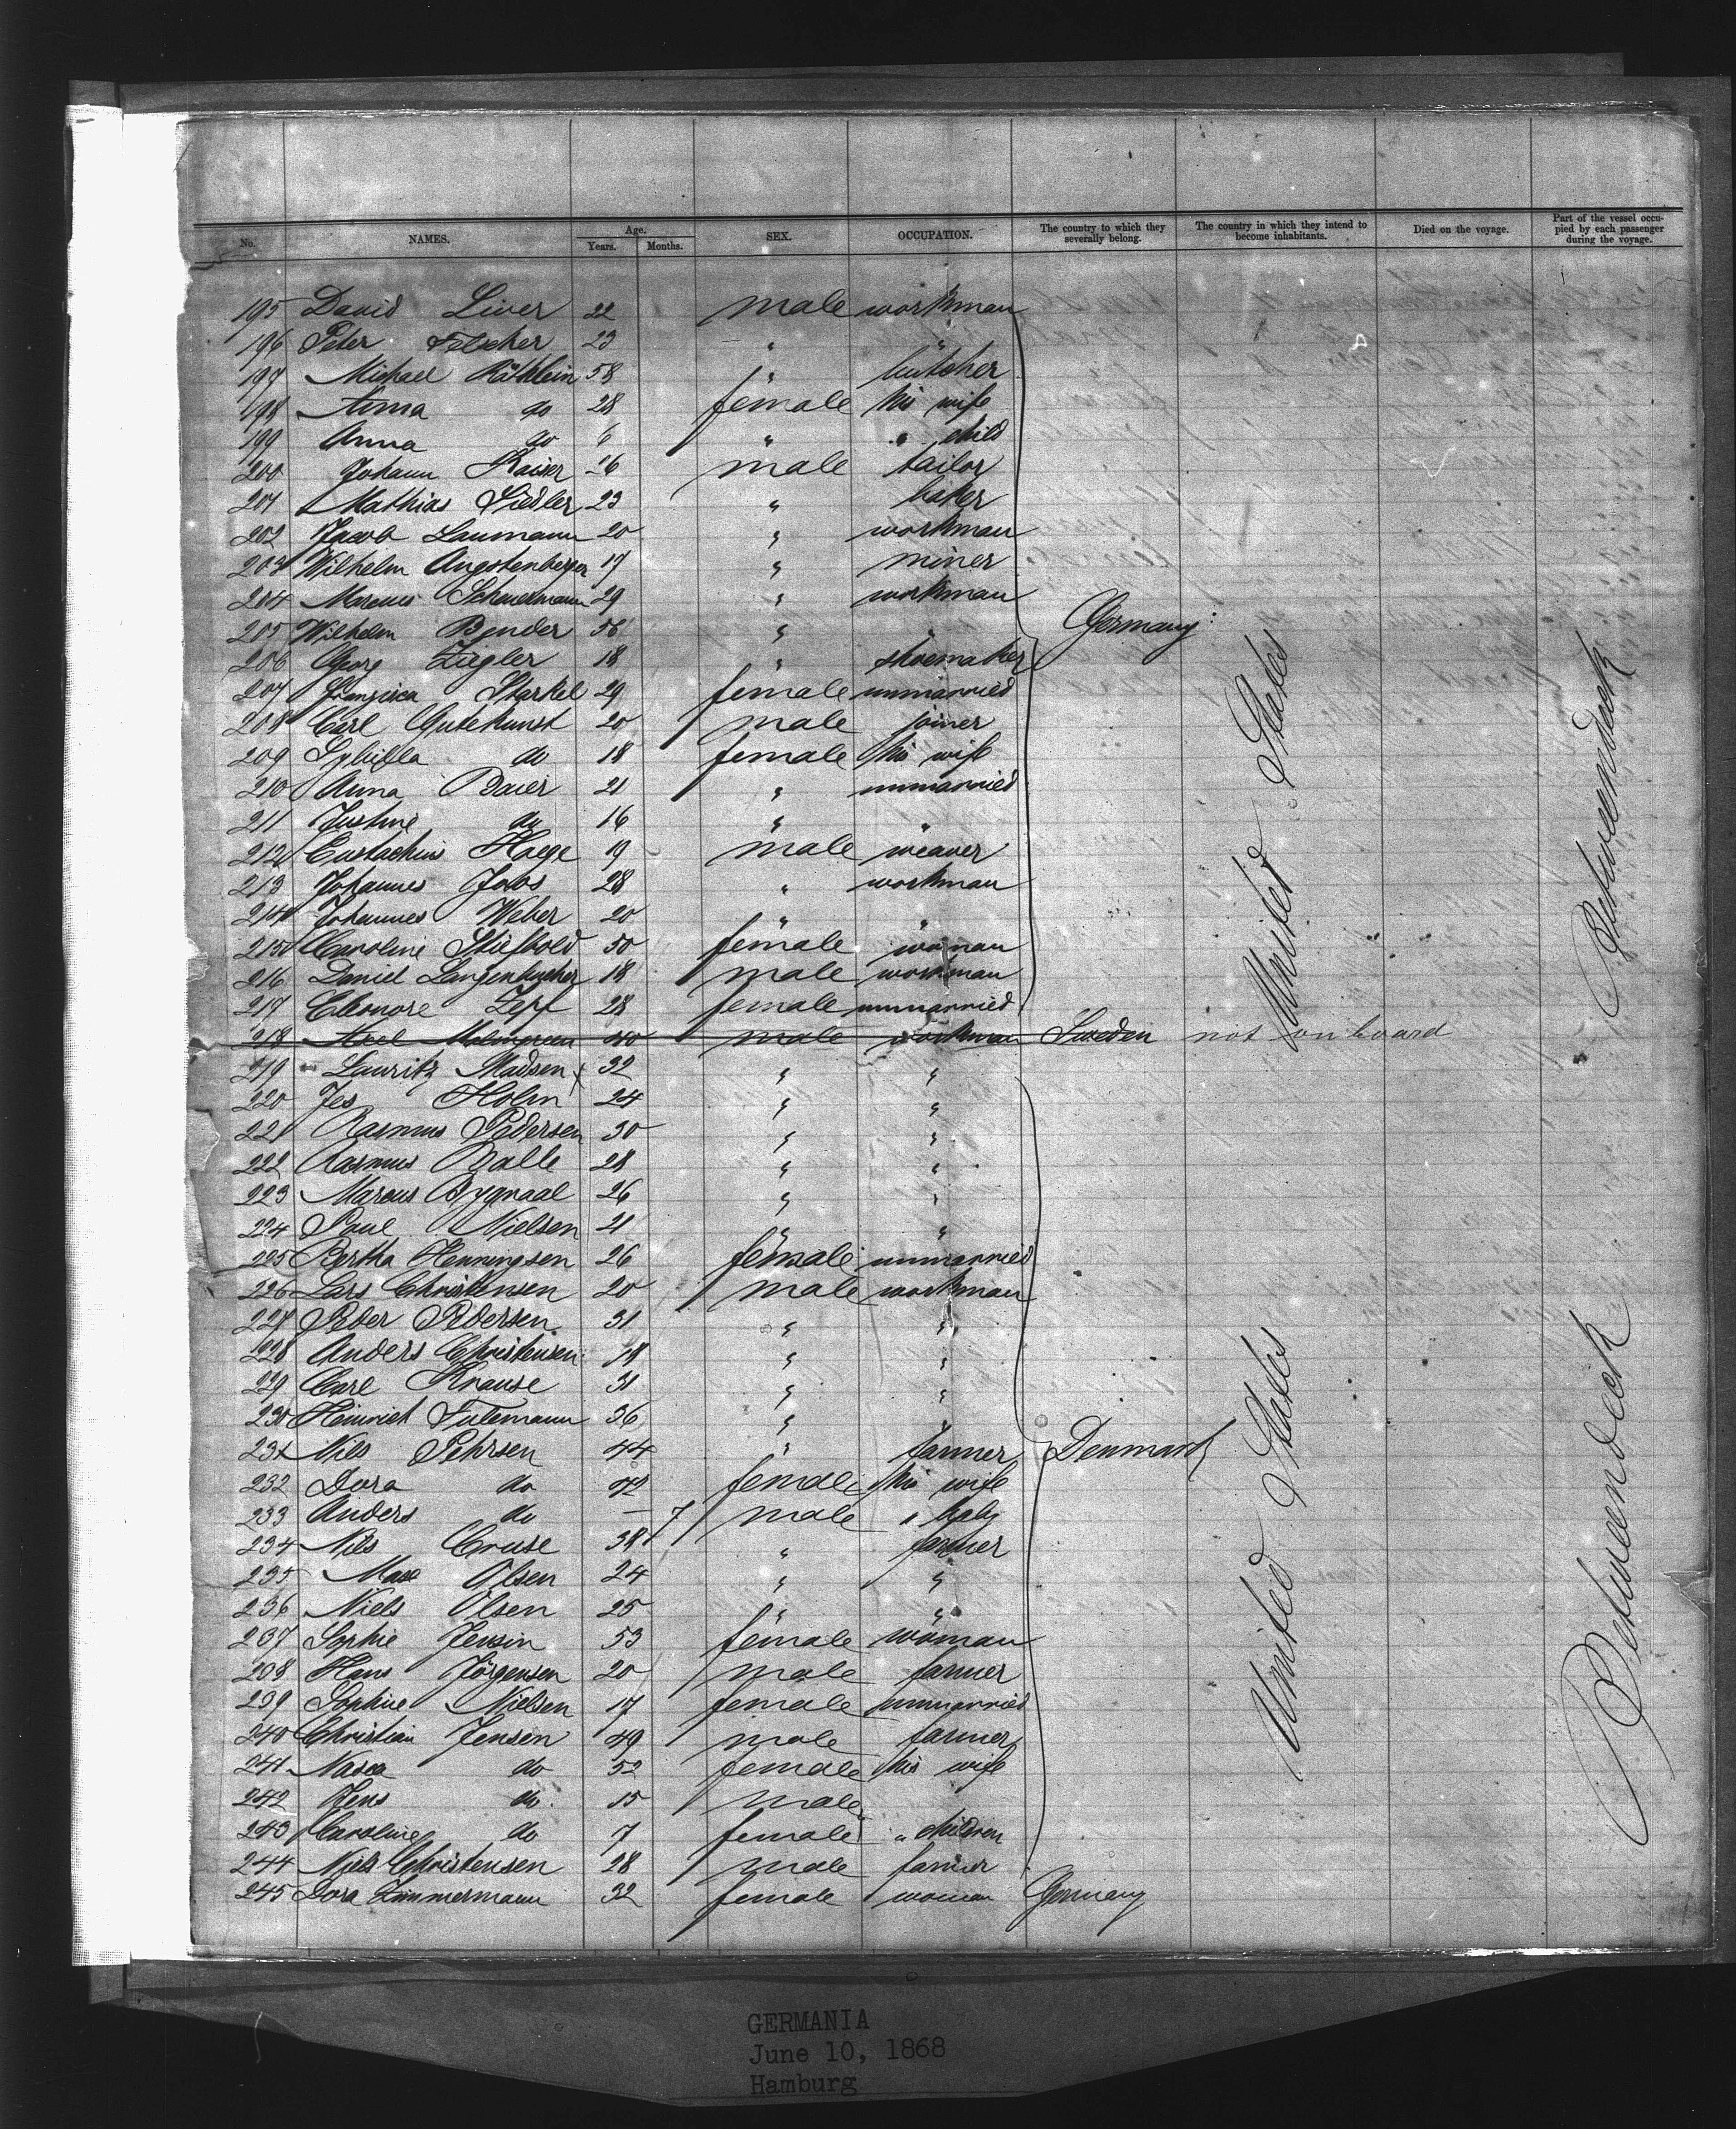 No. NAMES. Age. Years. Months. SEX. OCCUPATION. The country to which they severally belong. The country in which they intend to become inhabitants. Died on the voyage. Part of the vessel occupied by each passenger during the voyage.
195 David Liver 22 male workman
196 Peter Felscher 23 " "
197 Michael Röthlein 58 " butcher
198 Anna do 28 female his wife
199 Anna do 6 " " child
200 Johann Kaiser 26 male tailor
201 Mathias Siedler 23 " baker
202 Jacob Laumann 20 " workman
203 Wilhelm Angstenberger 17 " miner
204 Marcus Scheuermann 29 " workman
205 Wilhelm Bender 56 " " Germany
206 Georg Ziegler 18 " shoemaker
207 Franzisca Starkel 29 female unmarried
208 Carl Gutekunst 20 male joiner
209 Sybilla do 18 female his wife
210 Anna Baier 21 " unmarried
211 Justine do 16 " "
212 Eustachius Haege 19 male weaver
213 Johannes Jobs 28 " workman
214 Johannes Weber 20 " "
215 Caroline Stiefbold 50 female woman
216 Daniel Langenbucher 18 male workman
217 Eleonore Zepf 28 female unmarried
218 Axel Malmgreen 40 male workman Sweden not on board
219 Lauritz Madsen x 32 " "
220 Jes Holm 24 " "
221 Rasmus Pedersen 30 " "
222 Rasmus Balle 28 " "
223 Marcus Bygnaal 26 " "
224 Paul Nielsen 21 " "
225 Bertha Henningsen 26 female unmarried
226 Lars Christensen 20 male workman
227 Peder Pedersen 31 " "
228 Anders Christensen 18 " "
229 Carl Krause 31 " "
230 Heinrich Tutemann 36 " "
231 Nils Pehrsen 44 " farmer Denmark
232 Dora do 42 female his wife
233 Anders do — 7 male " baby
234 Nils Cruse 38 " farmer
235 Mase Olsen 24 " "
236 Niels Olsen 25 " "
237 Sophie Jensin 53 female woman
238 Hans Jörgensen 20 male farmer
239 Sophie Nielsen 17 female unmarried
240 Christian Jensen 49 male farmer
241 Nasea do 52 female his wife
242 Jens do 15 male
243 Caroline do 7 female " children
244 Niels Christensen 28 male farmer
245 Dora Zimmermann 32 female woman Germany
United States
Betweendeck
United States
Betweendeck
GERMANIA
June 10, 1868
Hamburg